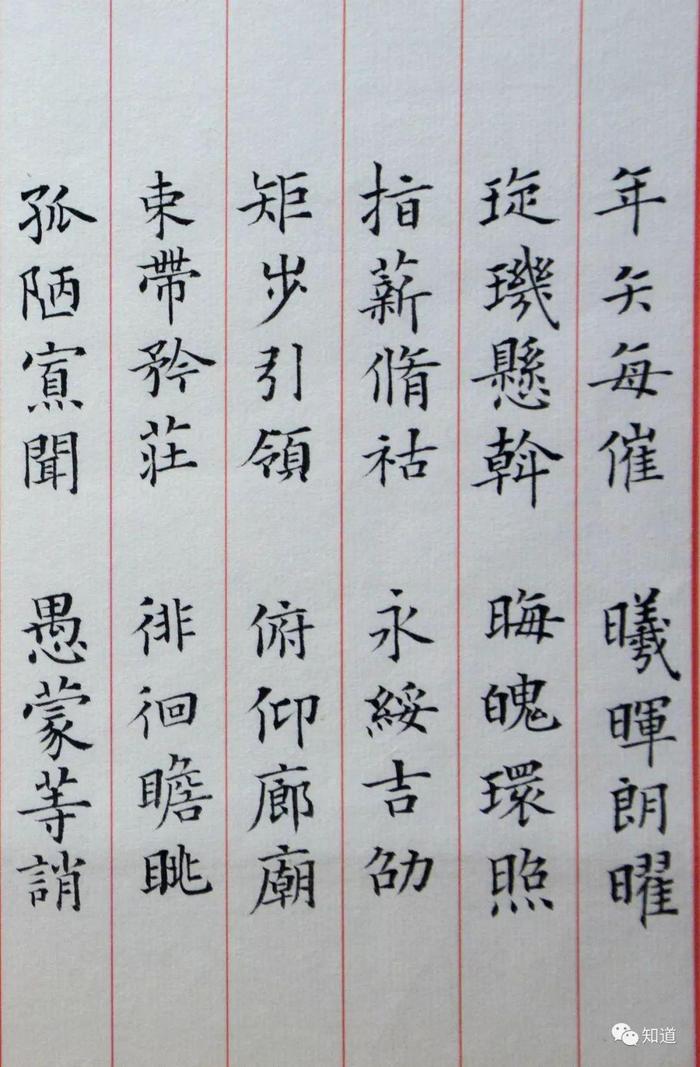 年矢每催 曦暉朗曜
琁璣懸斡 晦魄環照
指薪脩祜 永綏吉劭
矩步引領 俯仰廊廟
束帶矜莊 徘徊瞻眺
孤陋寡聞 愚蒙等誚
知道